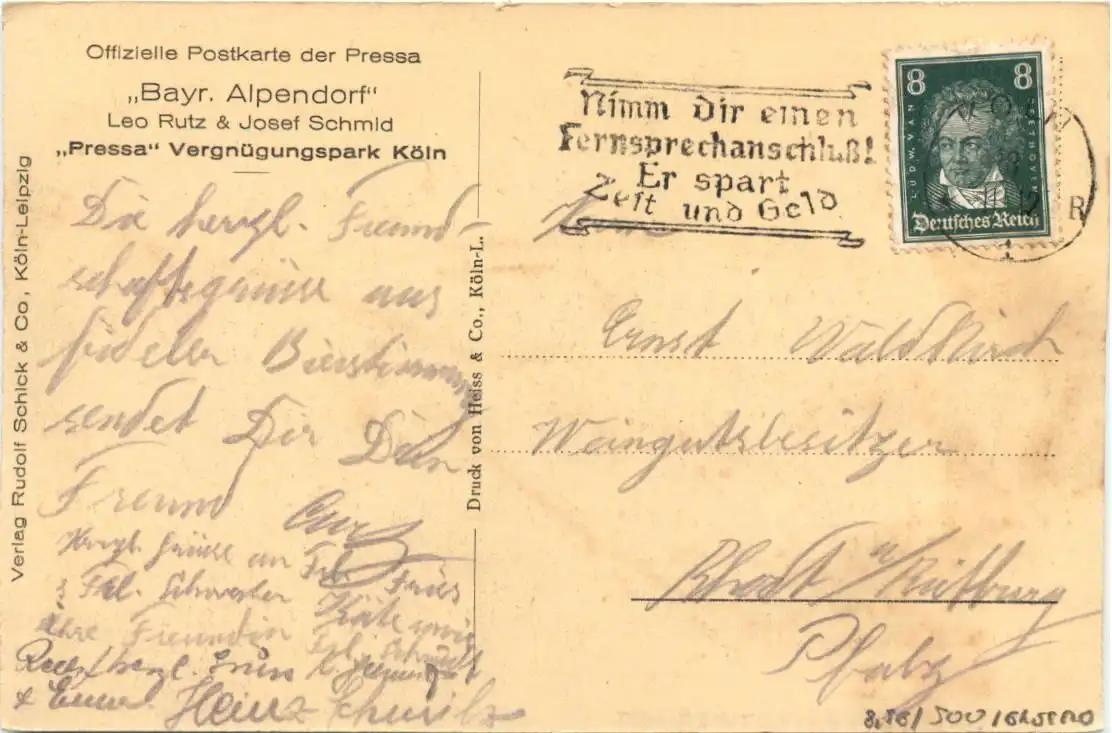 Offizielle Postkarte der Pressa
„Bayr. Alpendorf"
Leo Rutz & Josef Schmid
„Pressa" Vergnügungspark Köln
Verlag Rudolf Schick & Co., Köln-Leipzig
Druck von Heiss & Co., Köln-L.
Nimm dir einen
Fernsprechanschluß!
Er spart
Zeit und Geld
8 8
LUDW. VAN BEETHOVEN
Deutsches Reich
Die herzl. Freund-
schaftsgrüsse aus
fideler Bierstimmung
sendet Dir Dein
Freund
Herzl. Grüsse an Frl.
& Frl. Schwester Käte
ihre Freundin Frl.
Recht herzl. Gruss
Heinz
Herrn
Ernst Waldkirch
Weingutsbesitzer
Rhodt
Pfalz